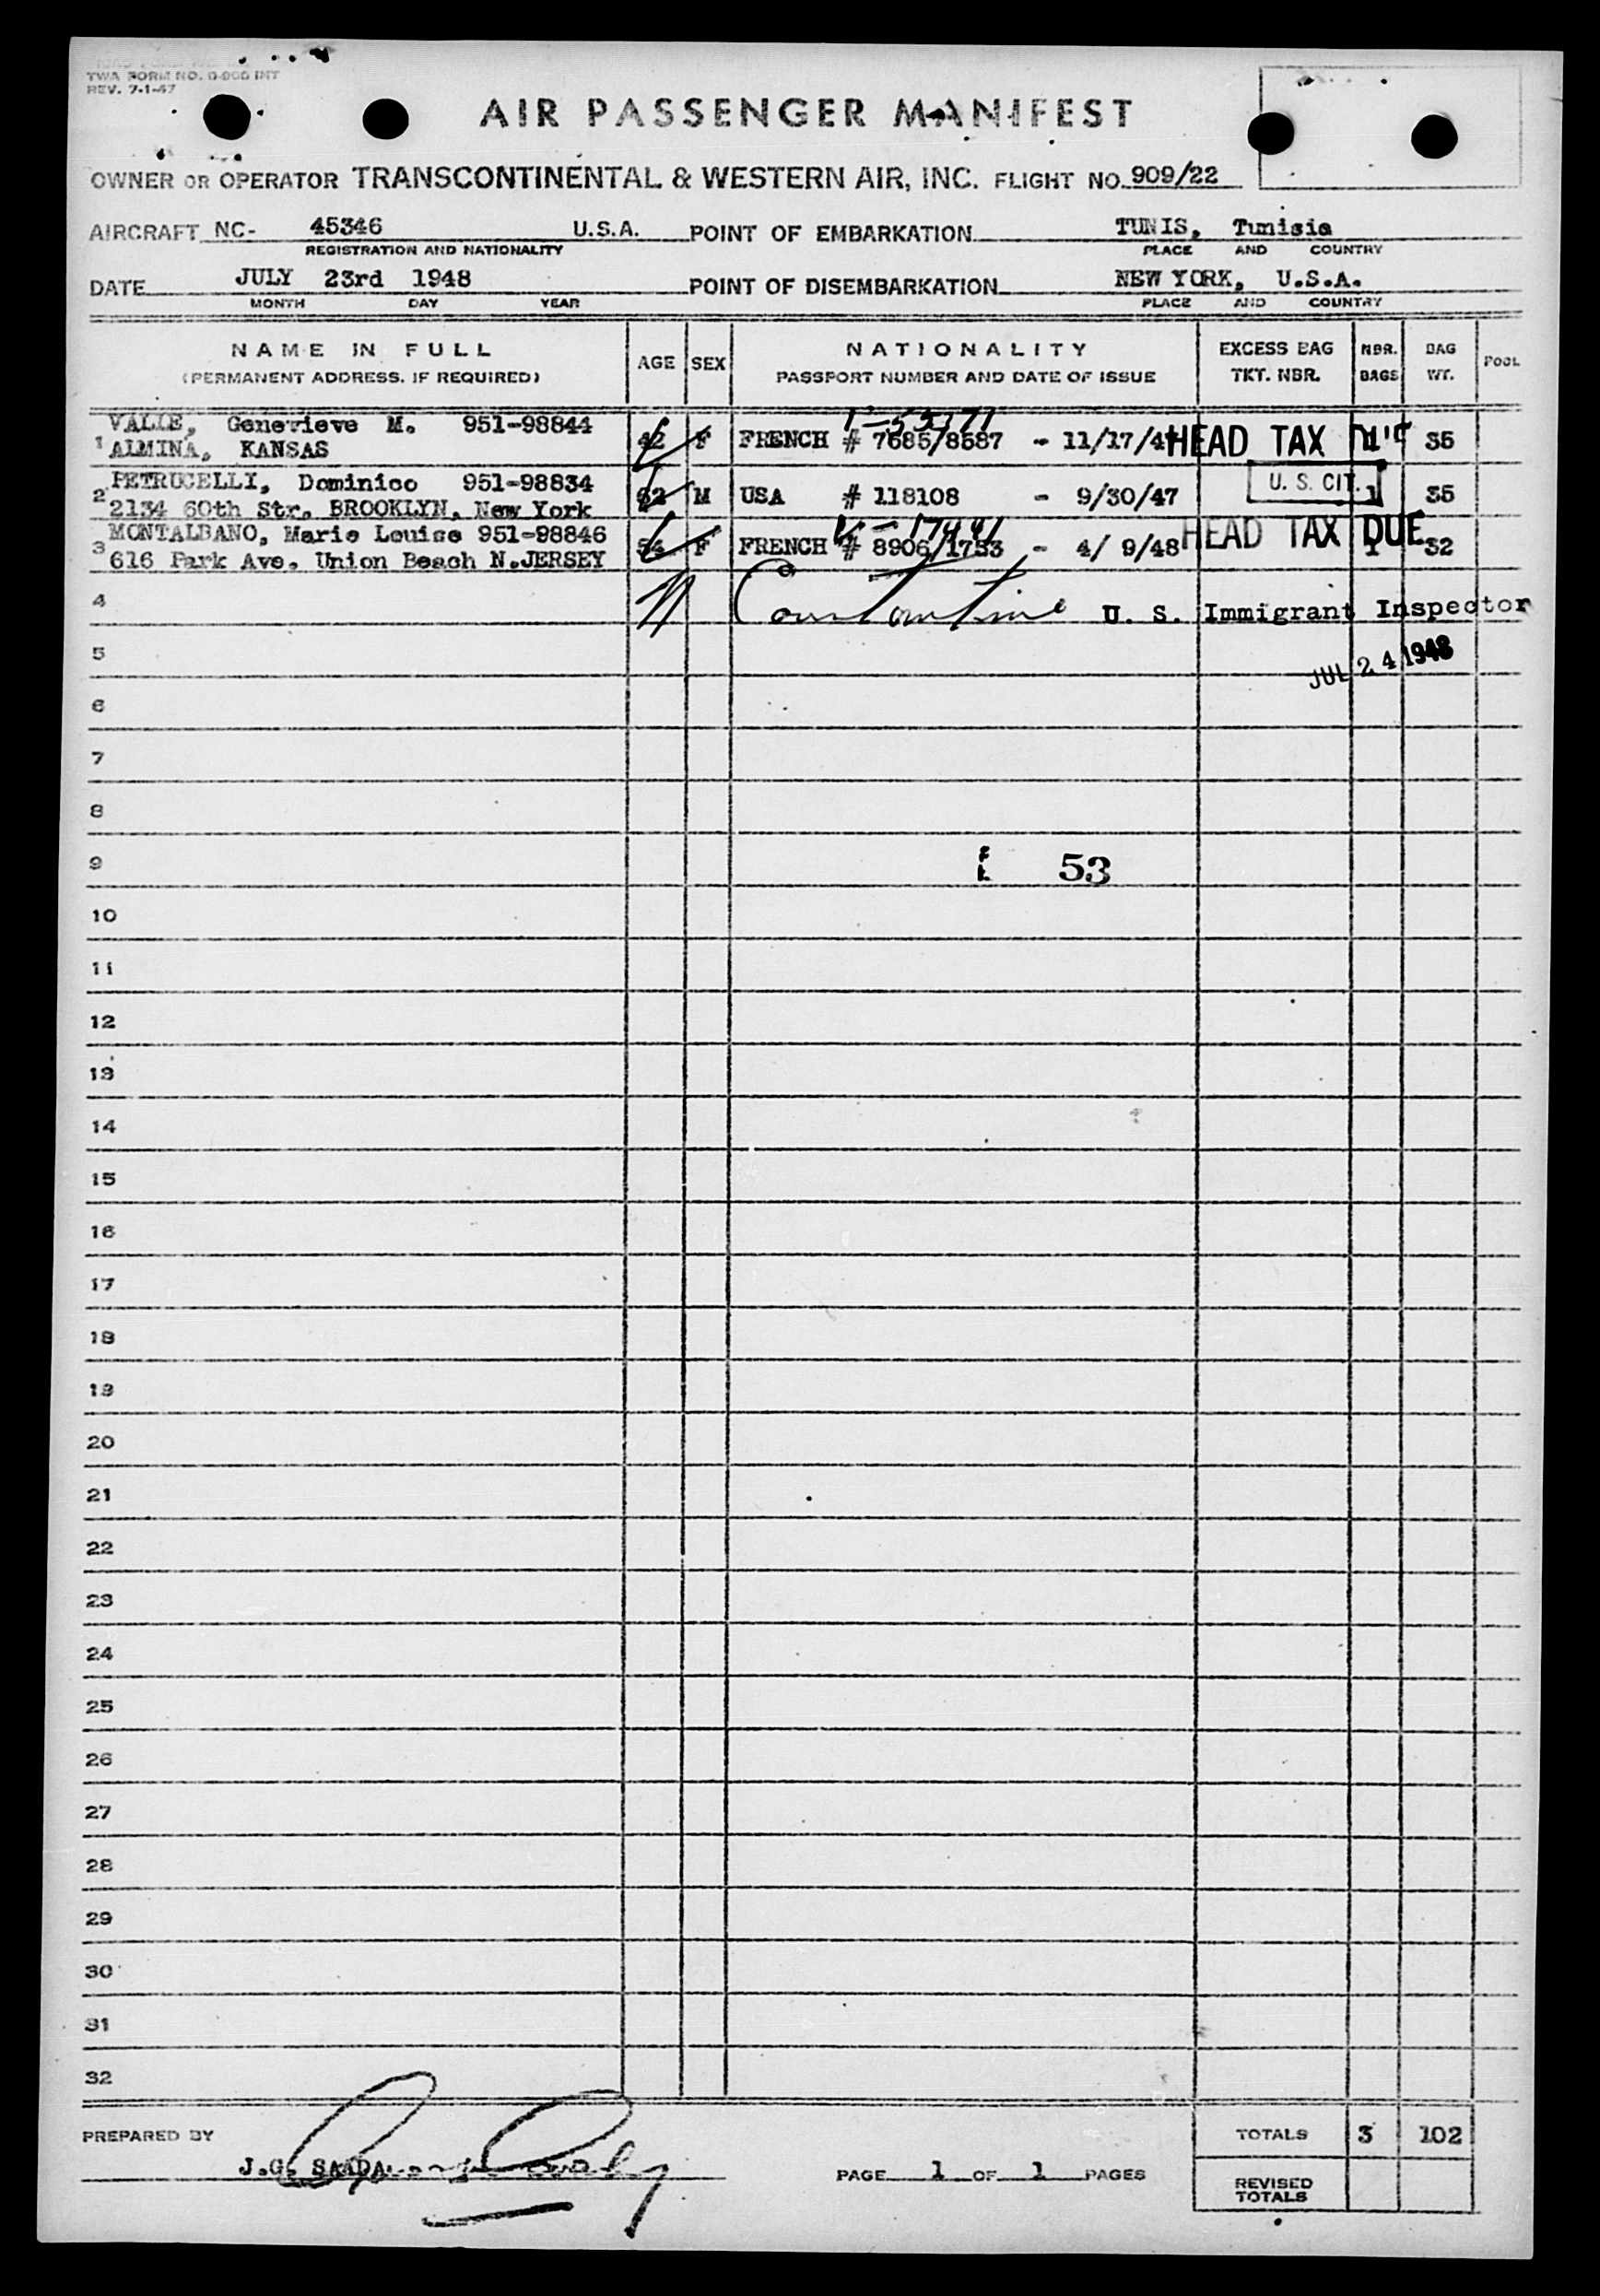 TWA FORM NO. 0-906 INT
REV. 7-1-47
AIR PASSENGER MANIFEST
OWNER OR OPERATOR TRANSCONTINENTAL & WESTERN AIR, INC. FLIGHT NO. 909/22
AIRCRAFT NC- 45346 U.S.A. POINT OF EMBARKATION TUNIS, Tunisia
REGISTRATION AND NATIONALITY PLACE AND COUNTRY
DATE JULY 23rd 1948 POINT OF DISEMBARKATION NEW YORK, U.S.A.
MONTH DAY YEAR PLACE AND COUNTRY
NAME IN FULL AGE SEX NATIONALITY EXCESS BAG NBR. BAG POOL
(PERMANENT ADDRESS. IF REQUIRED) PASSPORT NUMBER AND DATE OF ISSUE TKT. NBR. BAGS WT.
VALLE, Genevieve M. 951-98844
1 ALMINA, KANSAS 42 F FRENCH # 7685/8587 - 11/17/47 HEAD TAX DUE 1 35
PETRUCELLI, Dominico 951-98834 U. S. CIT.
2 2134 60th Str. BROOKLYN, New York 62 M USA # 118108 - 9/30/47 1 35
MONTALBANO, Marie Louise 951-98846 V-17441
3 616 Park Ave. Union Beach N.JERSEY 54 F FRENCH # 8906/1753 - 4/ 9/48 HEAD TAX DUE 1 32
4 Constantine U. S. Immigrant Inspector
5 JUL 24 1948
6
7
8
9 53
10
11
12
13
14
15
16
17
18
19
20
21
22
23
24
25
26
27
28
29
30
31
32
PREPARED BY J.G. SAADA
PAGE 1 OF 1 PAGES
TOTALS 3 102
REVISED TOTALS